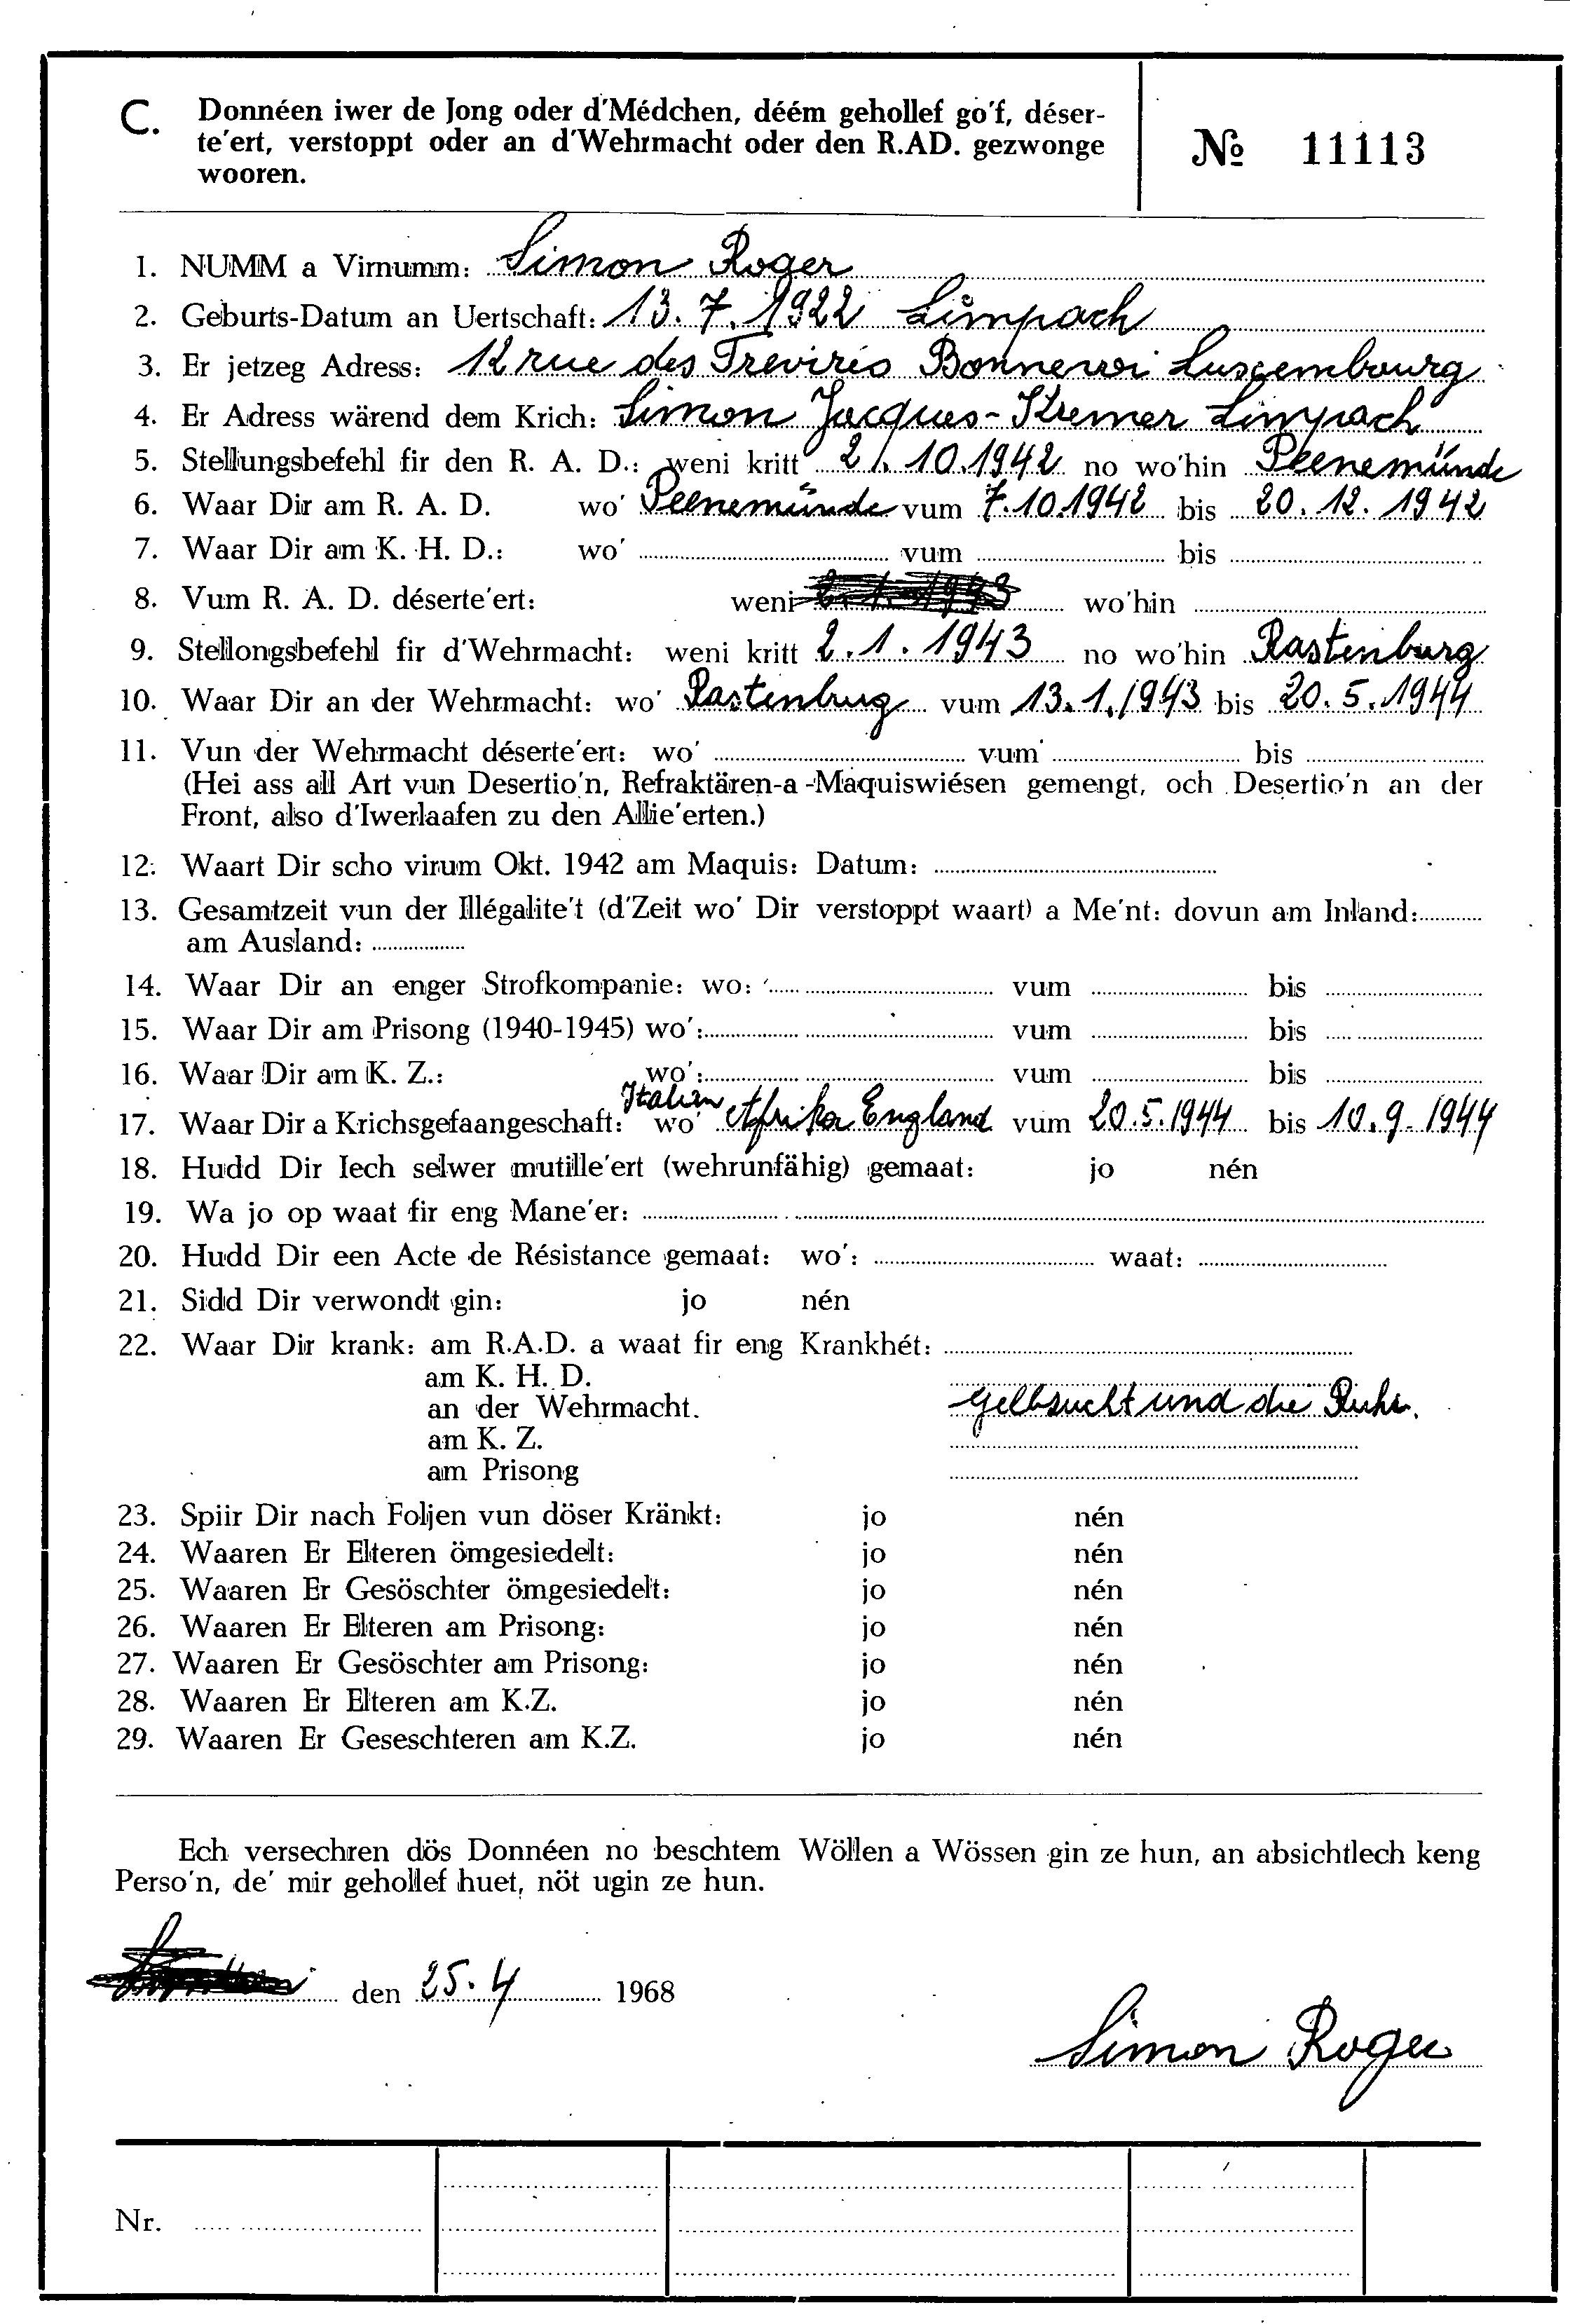 C. Donnéen iwer de Jong oder d'Médchen, déém gehollef go'f, déser-
te'ert, verstoppt oder an d'Wehrmacht oder den R.AD. gezwonge
wooren.
№ 11113
1. NUMM a Virnumm: Simon Roger
2. Geburts-Datum an Uertschaft: 13.7.1922 Limpach
3. Er jetzeg Adress: 12 rue des Trevires Bonnewoi Luxembourg
4. Er Adress wärend dem Krich: Simon Jacques-Kremer Limpach
5. Stellungsbefehl fir den R. A. D.: weni kritt 2.10.1942 no wo'hin Peenemünde
6. Waar Dir am R. A. D. wo' Peenemünde vum 7.10.1942 bis 20.12.1942
7. Waar Dir am K. H. D.: wo' vum bis
8. Vum R. A. D. déserte'ert: weni 2.1.1943 wo'hin
9. Stellongsbefehl fir d'Wehrmacht: weni kritt 2.1.1943 no wo'hin Rastenburg
10. Waar Dir an der Wehrmacht: wo' Rastenburg vum 13.1.1943 bis 20.5.1944
11. Vun der Wehrmacht déserte'ert: wo' vum bis
(Hei ass all Art vun Desertio'n, Refraktären-a -Maquiswiésen gemengt, och Desertio'n an der
Front, also d'Iwerlaafen zu den Allie'erten.)
12. Waart Dir scho virum Okt. 1942 am Maquis: Datum:
13. Gesamtzeit vun der Illégalite't (d'Zeit wo' Dir verstoppt waart) a Me'nt: dovun am Inland:
am Ausland:
14. Waar Dir an enger Strofkompanie: wo: vum bis
15. Waar Dir am Prisong (1940-1945) wo': vum bis
16. Waar Dir am K. Z.: wo': vum bis
17. Waar Dir a Krichsgefaangeschaft: wo' Italien Afrika England vum 20.5.1944 bis 10.9.1944
18. Hudd Dir Iech selwer mutille'ert (wehrunfähig) gemaat: jo nén
19. Wa jo op waat fir eng Mane'er:
20. Hudd Dir een Acte de Résistance gemaat: wo': waat:
21. Sidd Dir verwondt gin: jo nén
22. Waar Dir krank: am R.A.D. a waat fir eng Krankhét:
am K. H. D.
an der Wehrmacht. Gelbsucht und die Ruhr.
am K. Z.
am Prisong
23. Spiir Dir nach Foljen vun döser Kränkt: jo nén
24. Waaren Er Elteren ömgesiedelt: jo nén
25. Waaren Er Gesöschter ömgesiedelt: jo nén
26. Waaren Er Elteren am Prisong: jo nén
27. Waaren Er Gesöschter am Prisong: jo nén
28. Waaren Er Elteren am K.Z. jo nén
29. Waaren Er Geseschteren am K.Z. jo nén
Ech versechren dös Donnéen no beschtem Wöllen a Wössen gin ze hun, an absichtlech keng
Perso'n, de' mir gehollef huet, nöt ugin ze hun.
den 25.4 1968
Simon Roger
Nr.